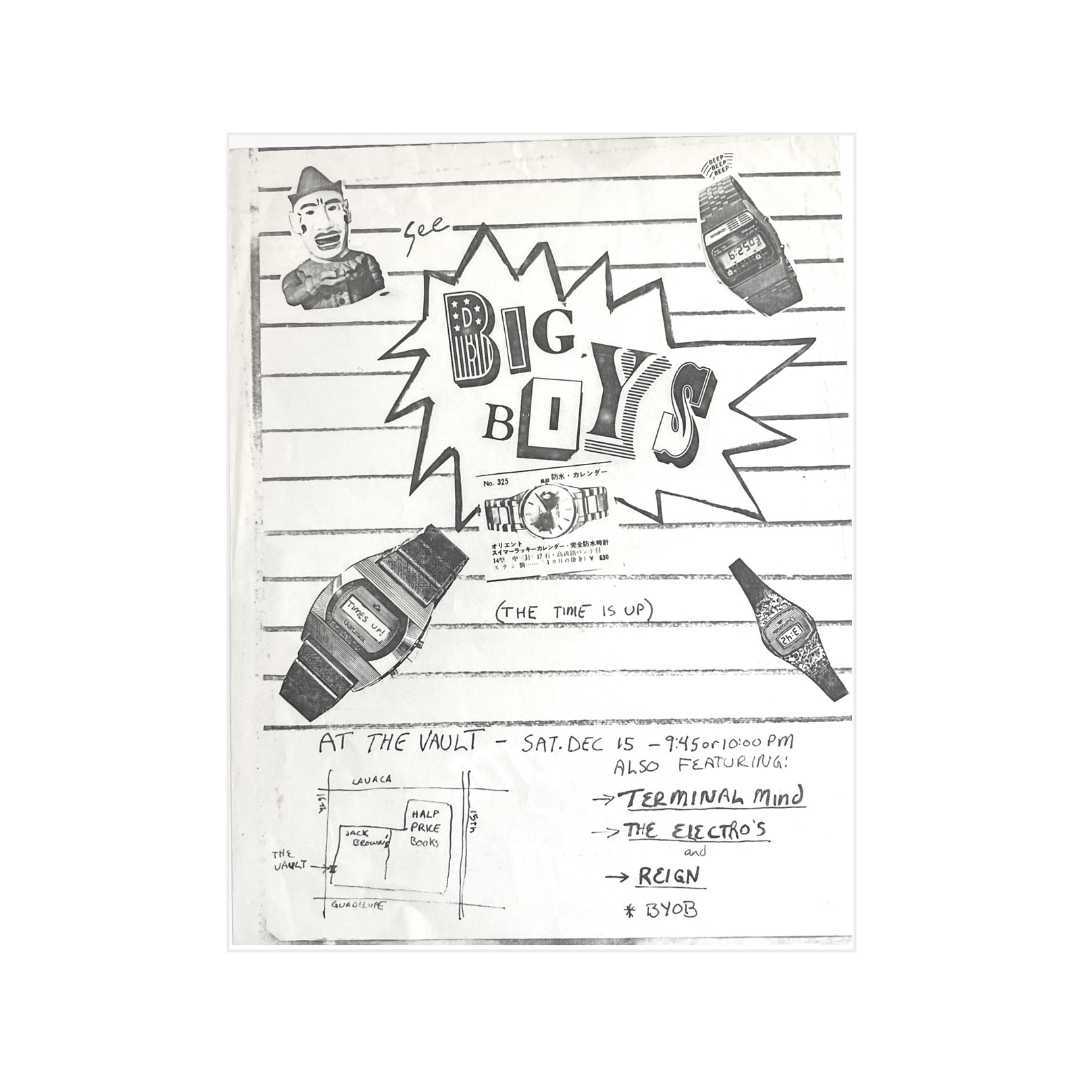 BEEP
BEEP
BEEP
See
BIG
BOYS
No. 325
防水・カレンダー
オリエント
スイマーラッキーカレンダー・完全防水時計
¥ 630
TIMES UP!
(THE TIME IS UP)
AT THE VAULT – SAT. DEC 15 – 9:45 or 10:00 PM
ALSO FEATURING:
→ TERMINAL MIND
→ THE ELECTRO'S
and
→ REIGN
* BYOB
LAVACA
16th
15TH
HALF
PRICE
BOOKS
JACK
BROWN'S
THE
VAULT →
GUADELUPE